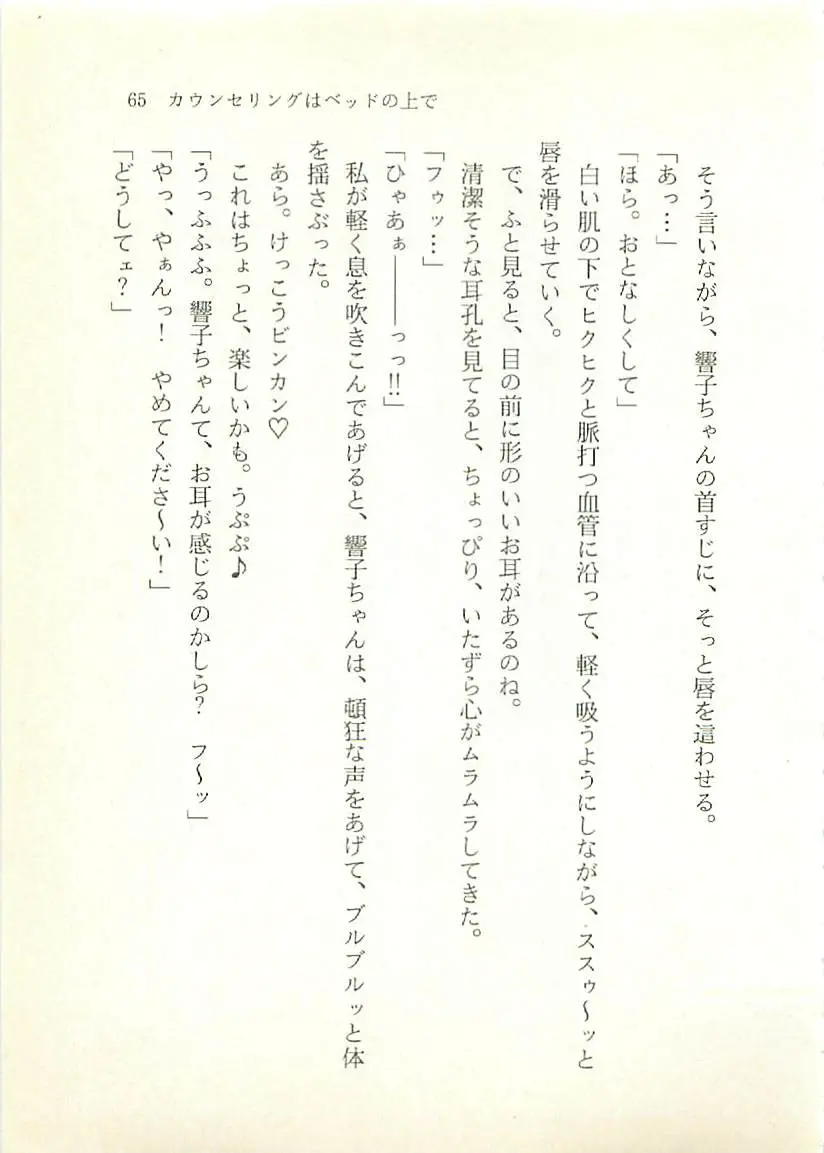 65　カウンセリングはベッドの上で
そう言いながら、響子ちゃんの首すじに、そっと唇を這わせる。
「あっ…」
「ほら。おとなしくして」
白い肌の下でヒクヒクと脈打つ血管に沿って、軽く吸うようにしながら、ススゥ～ッと
唇を滑らせていく。
で、ふと見ると、目の前に形のいいお耳があるのね。
清潔そうな耳孔を見てると、ちょっぴり、いたずら心がムラムラしてきた。
「フゥッ…」
「ひゃあぁ━━━っっ!!」
私が軽く息を吹きこんであげると、響子ちゃんは、頓狂な声をあげて、ブルブルッと体
を揺さぶった。
あら。けっこうビンカン♡
これはちょっと、楽しいかも。うぷぷ♪
「うっふふふ。響子ちゃんて、お耳が感じるのかしら?　フ～ッ」
「やっ、やぁんっ!　やめてくださ～い!」
「どうしてェ?」